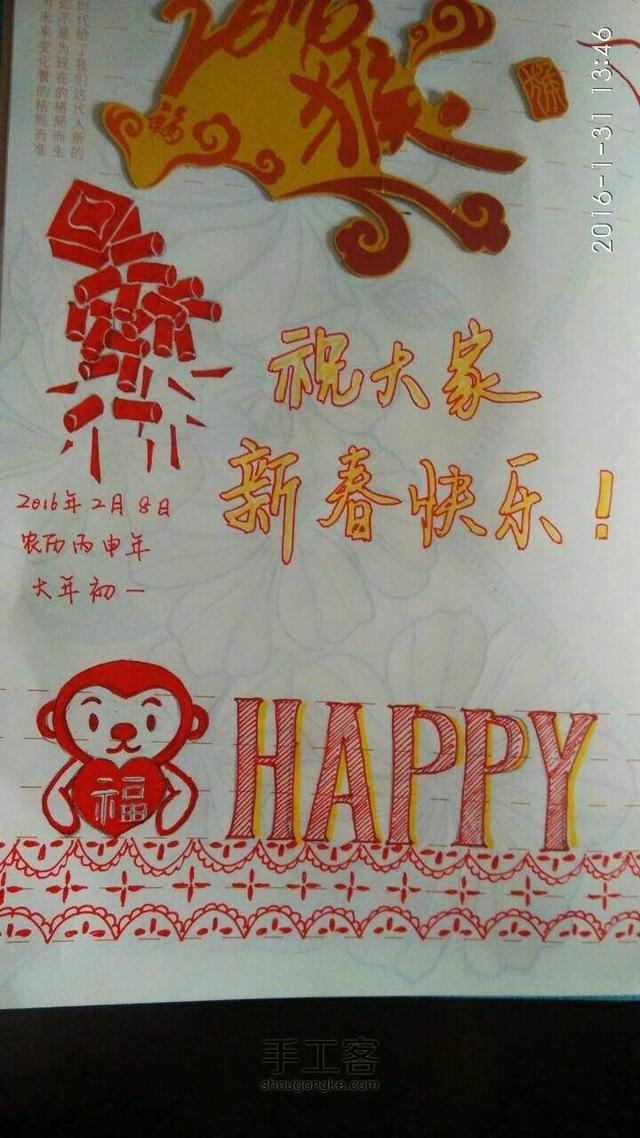 2016
福
猴
猴
2016-1-31 13:46
时代给了我们这代人新的
你不是为现在的格局而生
为未来变化着的格局而准
祝大家
新春快乐！
2016年2月8日
农历丙申年
大年初一
福
HAPPY
手工客
shougongke.com